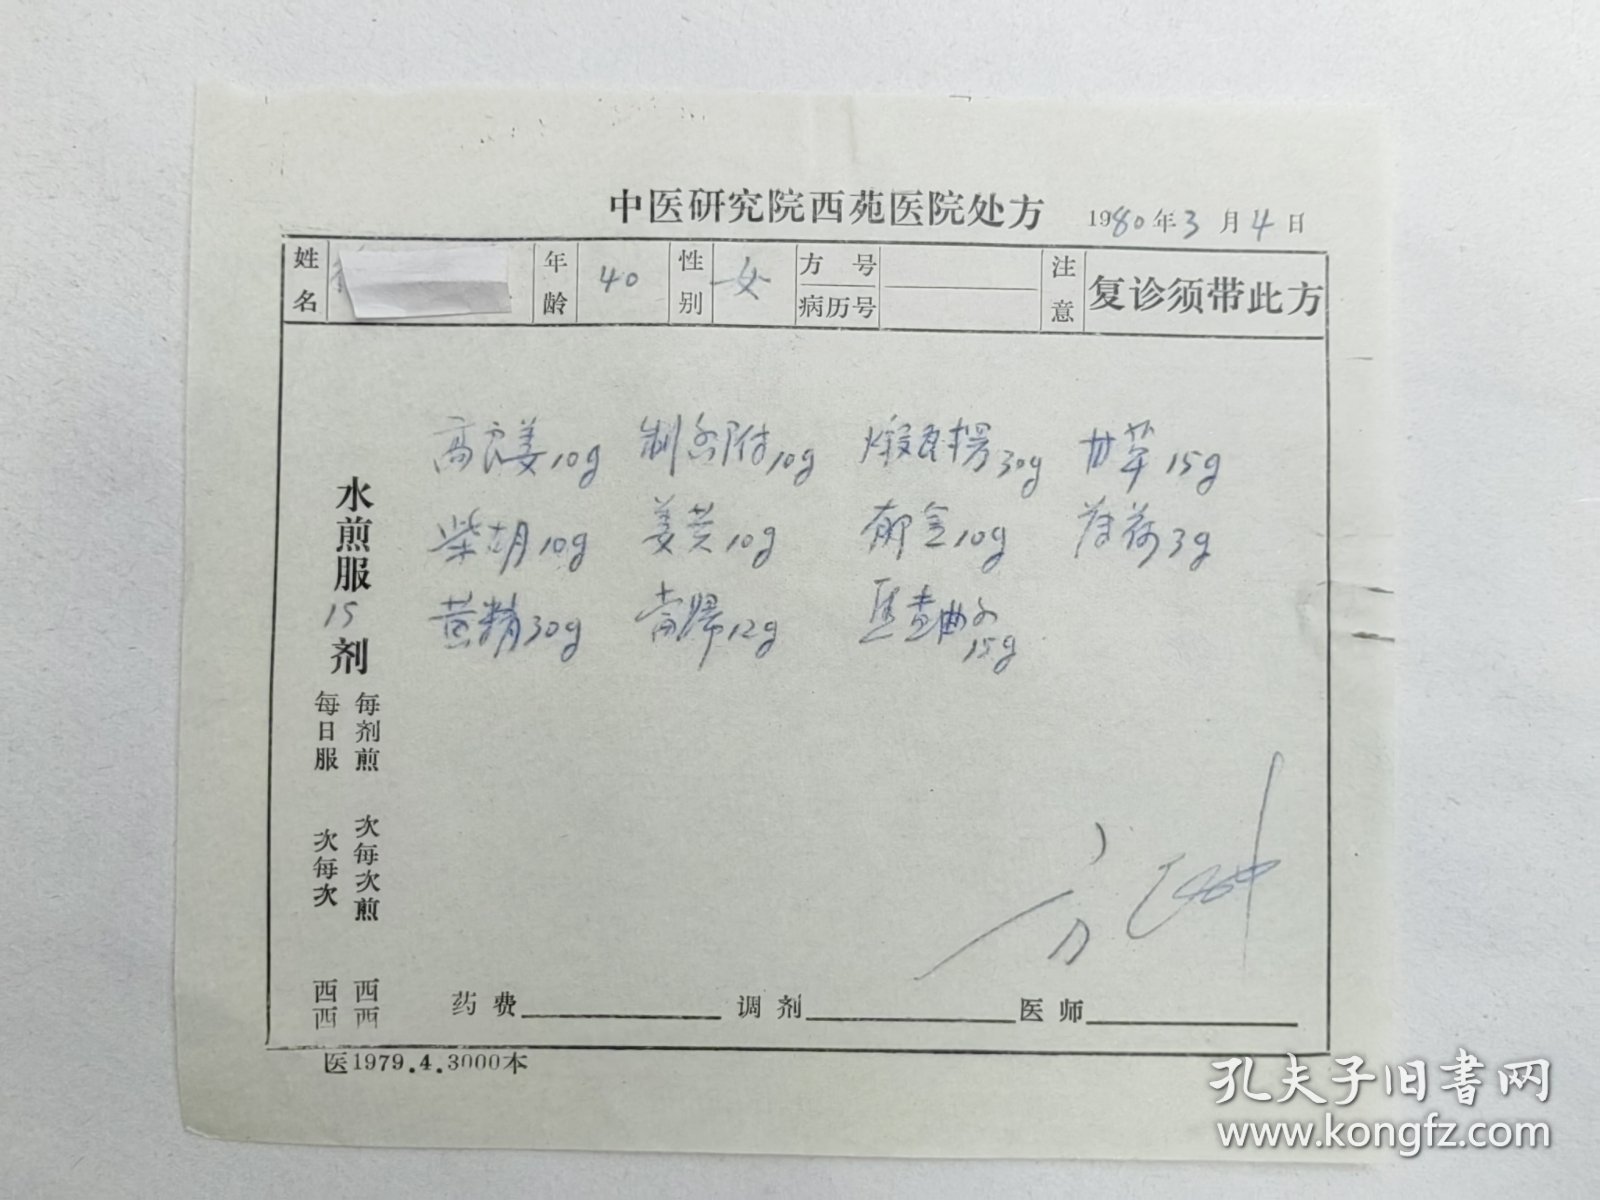 中医研究院西苑医院处方 1980年3月4日
姓名 年龄 40 性别 女 方号 病历号 注意 复诊须带此方
高良姜10g 制香附10g 煅瓦楞30g 甘草15g
柴胡10g 姜黄10g 郁金10g 薄荷3g
黄精30g 当归12g 15g
水煎服15剂
每剂煎 次每次煎 西西
每日服 次每次 西西
药费 调剂 医师
医1979.4.3000本
孔夫子旧书网
www.kongfz.com